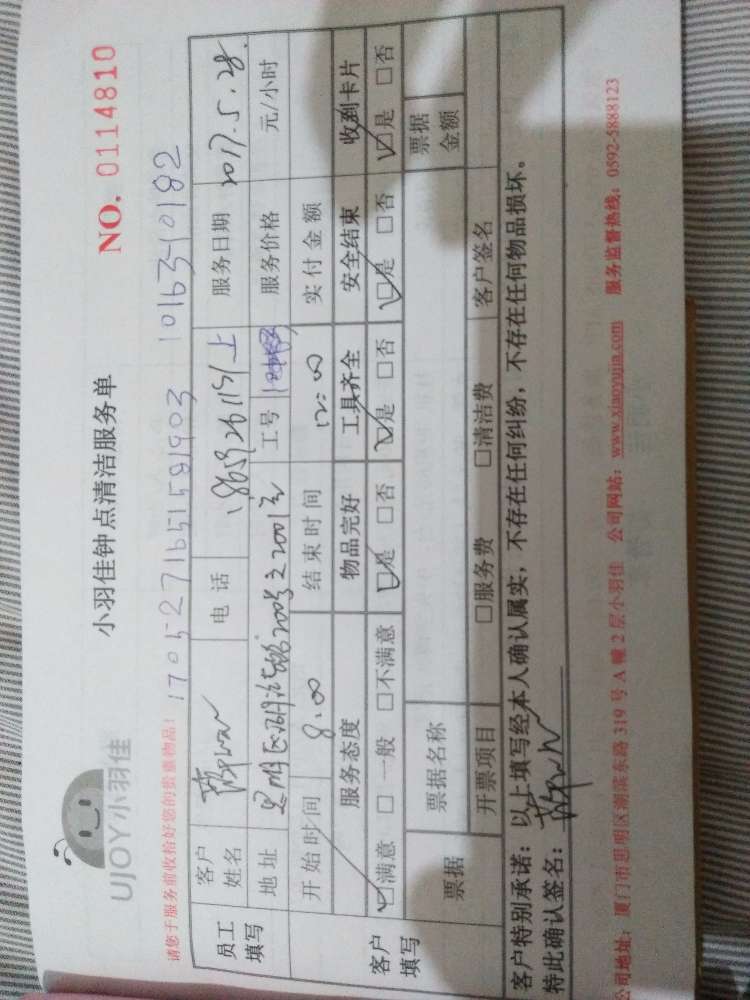 UJOY小羽佳
小羽佳钟点清洁服务单
NO. 0114810
请您于服务前收拾好您的贵重物品!
1705271651591903 10163-10182
员工填写
客户姓名
电话
服务日期 2017.5.28.
地址
工号
服务价格 元/小时
开始时间 8:00 结束时间 12:00 实付金额
客户填写
服务态度 物品完好 工具齐全 安全结束 收到卡片
☑满意 □一般 □不满意 ☑是 □否 ☑是 □否 ☑是 □否 ☑是 □否
票据 票据名称 票据金额
开票项目 □服务费 □清洁费 客户签名
客户特别承诺:以上填写经本人确认属实,不存在任何纠纷,不存在任何物品损坏。
特此确认签名:
公司地址:厦门市思明区湖滨东路 319 号 A 幢 2 层小羽佳 公司网站:www.xiaoyujia.com 服务监督热线:0592-5888123